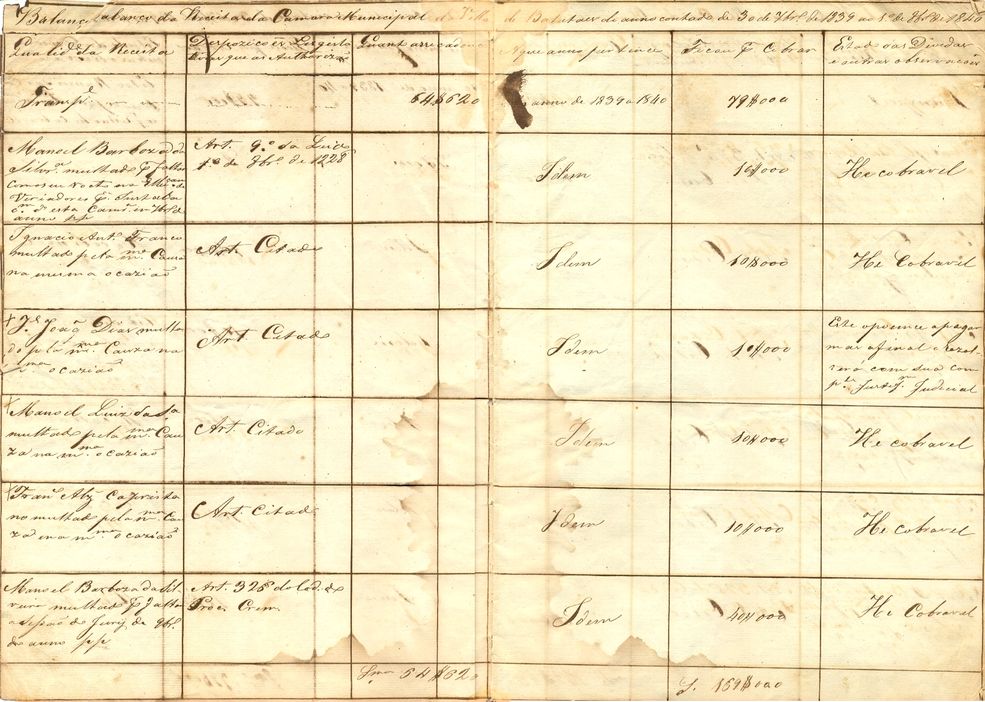 Balanço da Receita da Camara Municipal da Villa de Batataes do anno contado de 30 de 7br.o de 1839 ao 1.o de 8br.o de 1840
Qualid.e da Receita
Despozicoens Legisla
tivas que as Authoriza
Quant. arrecadada
que anno pertence
Ficou p.r Cobrar
Estado das Dividas
e outras observacoens
Transp.e
54$620
anno de 1839 a 1840
79$000
Manoel Barboza da
Silvr.a multado p. faltar
Com seu voto na
Veriadores p.
esta Cam.ra em 7br.o de
anno pp
Art. 9.o da Lei de
1.o de 8br.o de 1228
Idem
10$000
He cobravel
Ignacio Ant.o Franco
multado pela m.ma Cauza
na mesma ocazião
Art. Citado
Idem
10$000
He Cobravel
+ J.e João Dias multa
do pela m.ma Cauza na
m.ma ocazião
Art. Citado
Idem
10$000
Este opoem-se a pagar
mas afinal
com sua com
p.te Justif. Judicial
+ Manoel Luiz da Sa
multado pela m.ma Cau
za na m.ma ocazião
Art. Citado
Idem
10$000
He cobravel
+ Fran.co Alz Caprista
no multado pela m.ma Cau
za na m.ma ocazião
Art. Citado
Idem
10$000
He cobravel
Manoel Barboza da Sil
veira multado p. falta
a sessão do Jury de 9br.o
do anno pp
Art. 325 do Cod. do
Proc. Crem.
Idem
40$000
He Cobravel
Sma 54$620
S. 159$000